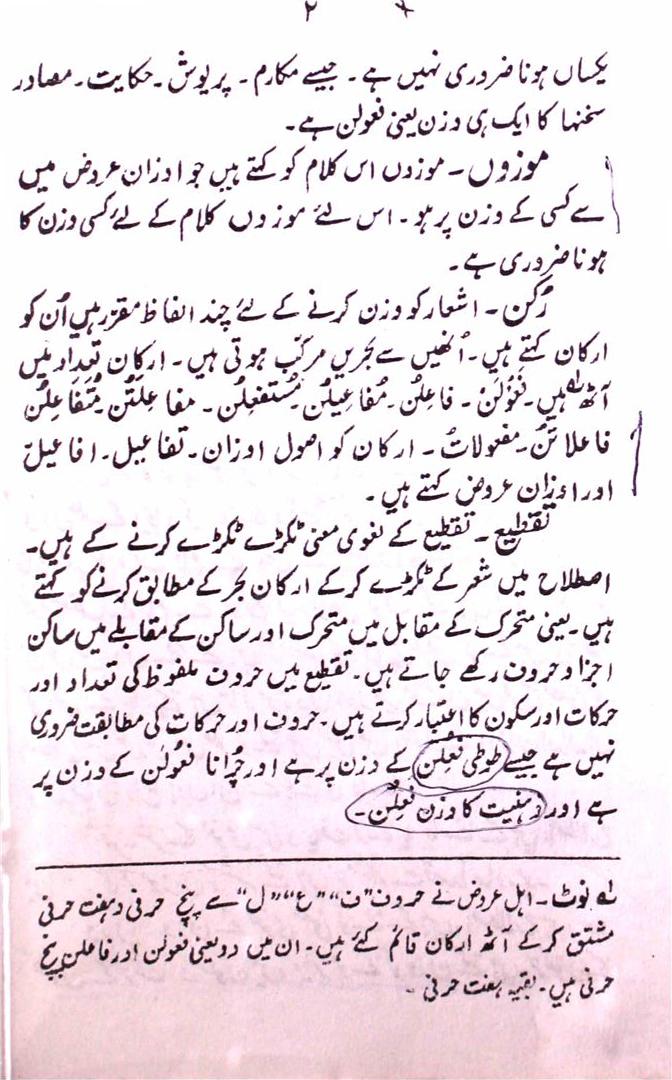 ۲
یکساں ہونا ضروری نہیں ہے۔ جیسے مکارم۔ پریوش۔ حکایت۔ مصادر
سخنہا کا ایک ہی وزن یعنی فعولن ہے۔
موزوں۔ موزوں اس کلام کو کہتے ہیں جو اوزان عروض میں
سے کسی کے وزن پر ہو۔ اس لئے موزوں کلام کے لئے کسی وزن کا
ہونا ضروری ہے۔
رُکن۔ اشعار کو وزن کرنے کے لئے چند الفاظ مقرر ہیں اُن کو
ارکان کہتے ہیں۔ اُنھیں سے بحریں مرکّب ہوتی ہیں۔ ارکان تعداد میں
آٹھ لہ ہیں۔ فَعُولُن۔ فاعِلُن۔ مُفاعِیلُن۔ مُستفعِلُن۔ مفاعِلَتُن۔ مُتَفاعِلُن
فاعلاتُن۔ مفعولاتُ۔ ارکان کو اصول اوزان۔ تفاعیل۔ افاعیل
اور اوزان عروض کہتے ہیں۔
تقطیع۔ تقطیع کے لغوی معنی ٹکڑے ٹکڑے کرنے کے ہیں۔
اصطلاح میں شعر کے ٹکڑے کرکے ارکان بحر کے مطابق کرنے کو کہتے
ہیں۔ یعنی متحرک کے مقابل میں متحرک اور ساکن کے مقابلے میں ساکن
اجزا و حروف رکھے جاتے ہیں۔ تقطیع میں حروف ملفوظ کی تعداد اور
حرکات اور سکون کا اعتبار کرتے ہیں۔ حروف اور حرکات کی مطابقت ضروری
نہیں ہے جیسے طوطی فعْلن کے وزن پر ہے اور چُرانا فعُولن کے وزن پر
ہے اور ذہنیت کا وزن فعِلن۔
لہ نوٹ۔ اہل عروض نے حروف "ف" "ع" "ل" سے پنج حرفی و ہفت حرفی
مشتق کرکے آٹھ ارکان قائم کئے ہیں۔ ان میں دو یعنی فعولن اور فاعلن پنج
حرفی ہیں۔ بقیہ ہفت حرفی۔